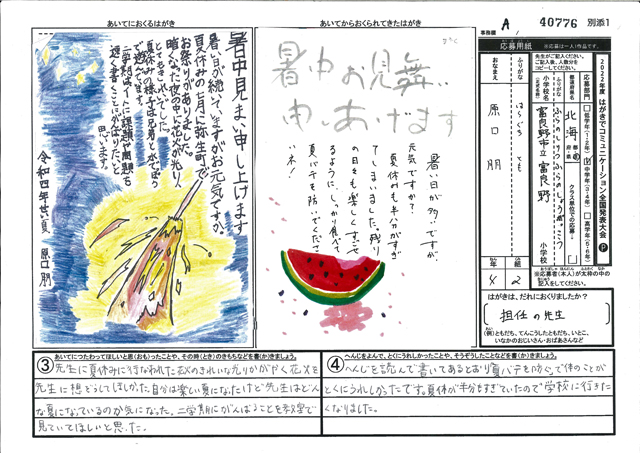 あいてにおくるはがき
あいてからおくられてきたはがき
事務欄
A
40776 別添1
暑中見まい申し上げます
暑い日が続いていますがお元気ですか。
夏休みの七月に弥生町で
お祭りがありました。
暗くなった夜の中に花火が光り
とてもきれいでした。
夏休みの様子は兄弟と水てっぽう
で遊んでいます。
二学期は
思います。
令和四年せい夏 原口 朋
暑中お見舞い
申しあげます
暑い日が多いですが、
元気ですか?
夏休みも半分がすぎ
てしまいました。残り
の日をも楽しくすごせ
るように、しっかり食べて
夏バテを防いでくださ
いネ!
応募用紙
※応募は一人1作品です。
先生がご記入ください。
ご記入後、人数分を
コピーしてください。
2022年度 はがきでコミュニケーション全国発表大会
応募部門
低学年(1・2年)
中学年(3・4年)
高学年(5・6年)
都道府県名
北海
都・道・府・県
クラス単位での応募
ふりがな
小学校名
(正式名称)
富良野市立 富良野
小学校
ふりがな
おなまえ
はらぐち とも
原口 朋
年 4
組 2
※応募者(本人)が太枠の中の
記入をしてください。
はがきは、だれにおくりましたか?
担任の先生
(例)ともだち、てんこうしたともだち、いとこ、
いなかのおじいさん・おばあさんなど
③ あいてにつたわってほしいと思(おも)ったことや、その時(とき)のきもちなどを書(か)きましょう。
先生に夏休みに行なわれた花火のきれいな光りかがやく花火を
先生に想ぞうしてほしかった。自分は楽しい夏になったけど先生はどん
な夏になっているのか気になった。二学期にがんばることを教室で
見ていてほしいと思った。
④ へんじをよんで、とくにうれしかったことや、そうぞうしたことなどを書(か)きましょう。
へんじを読んで書いてあるとおり夏バテを防ぐって体のことが
とくにうれしかったです。夏休が半分もすぎていたので学校に行きた
くなりました。